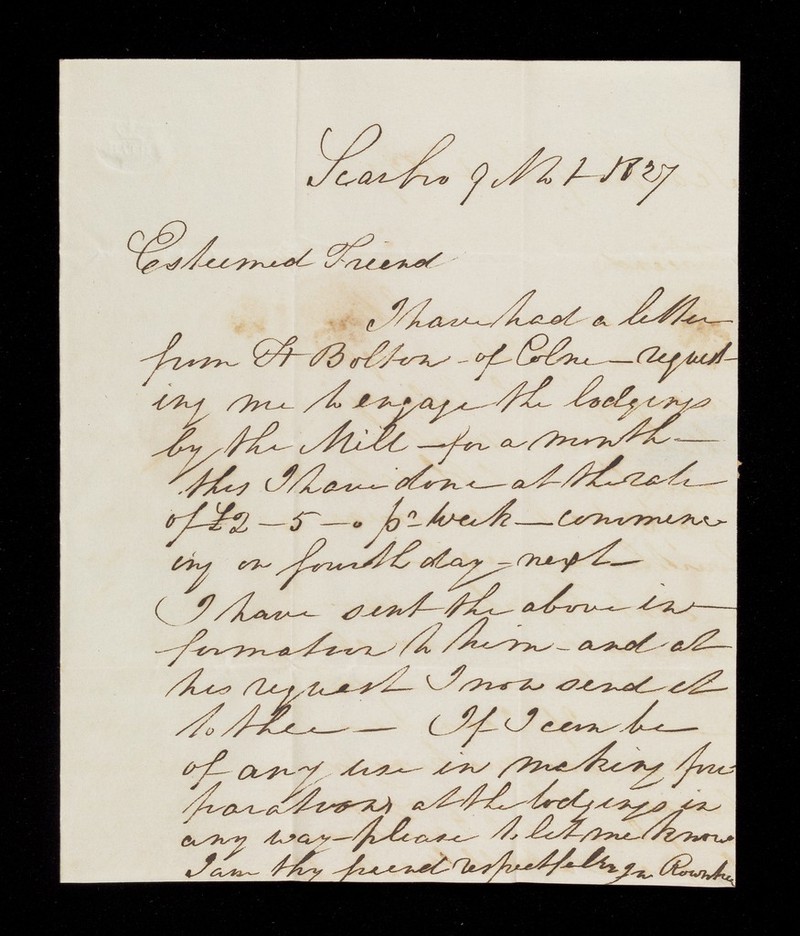 Scarbro 9 Mo 1 1827
Esteemed Friend
I have had a letter
from Bolton - of Colne - request
ing me to engage the lodgings
by the Mill - for a month -
this I have done at the rate
of £2 - 5 - 0 pr week - commenc
ing on fourth day next
I have sent the above in
formation to him - and at
his request I now send it
to thee - If I can be
of any use in making pre
parations at the lodgings in
any way - please to let me know
I am thy friend respectfully Jn Rowntree